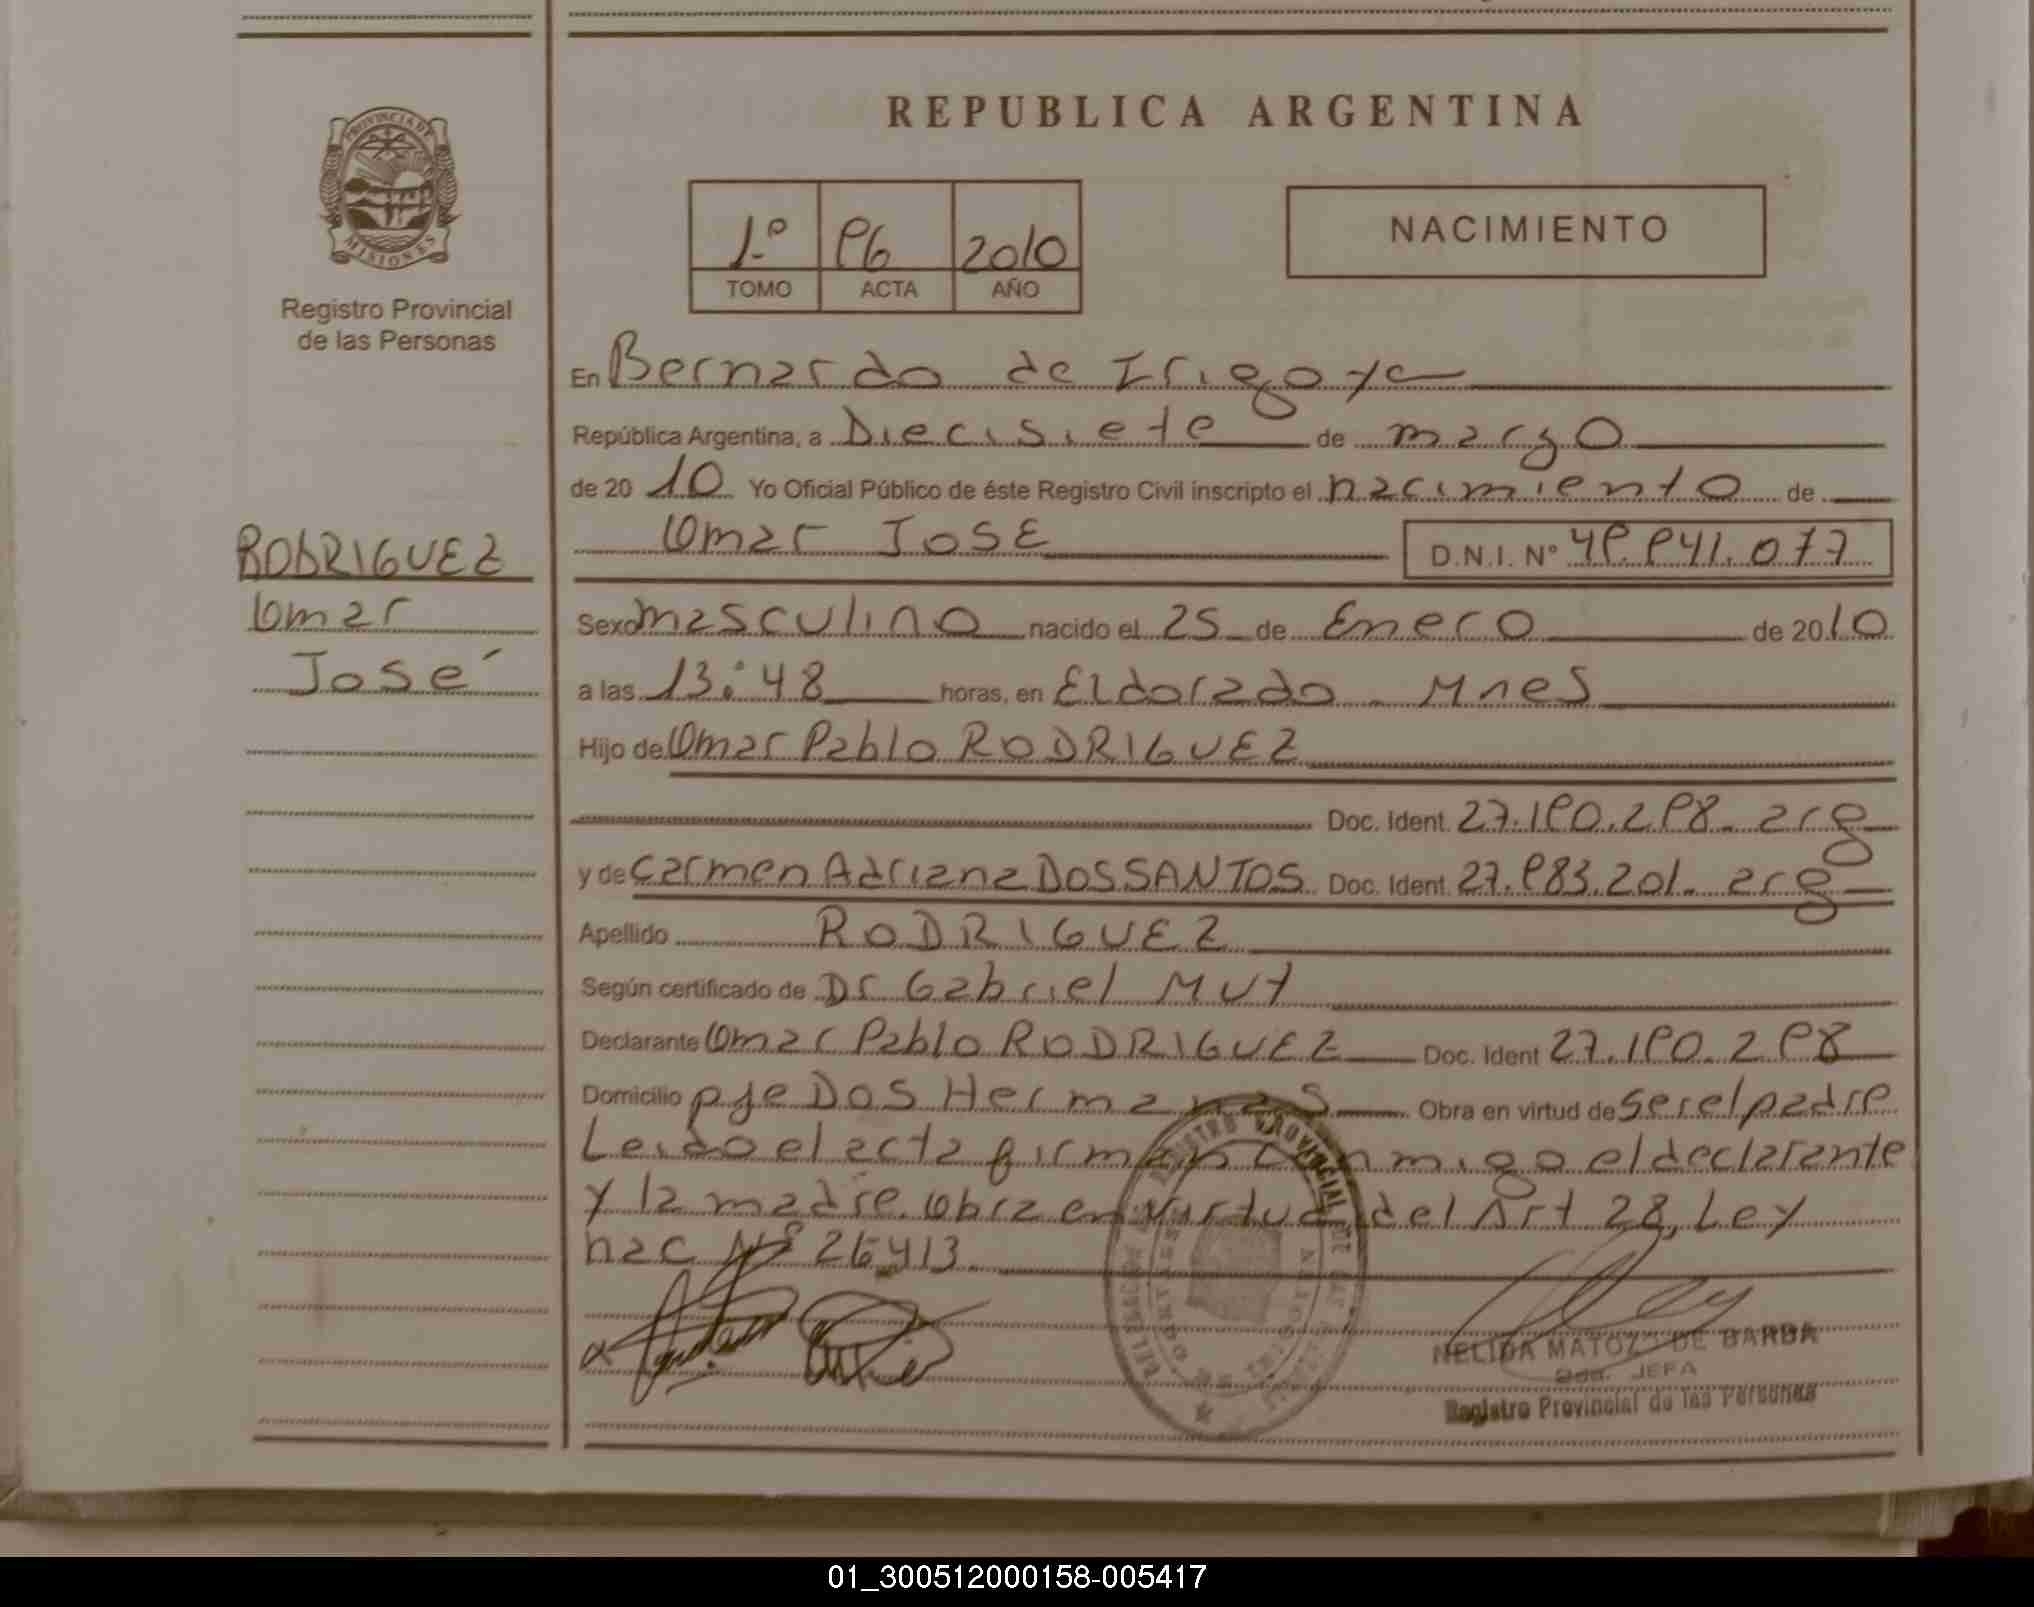 REPUBLICA ARGENTINA
PROVINCIA DE
MISIONES
Registro Provincial
de las Personas
1º 96 2010
TOMO ACTA AÑO
NACIMIENTO
En Bernardo de Irigoyen
República Argentina, a Diecisiete de marzo
de 2010 Yo Oficial Público de éste Registro Civil inscripto el nacimiento de
Omar JOSE D.N.I. Nº 49.941.077
RODRIGUEZ
Omar
José
Sexo masculino nacido el 25 de Enero de 2010
a las 13:48 horas, en Eldorado - Mnes
Hijo de Omar Pablo RODRIGUEZ
Doc. Ident. 27.190.298 - arg
y de Carmen Adriana DOS SANTOS Doc. Ident. 27.983.201 - arg
Apellido RODRIGUEZ
Según certificado de Dr Gabriel Mut
Declarante Omar Pablo RODRIGUEZ Doc. Ident 27.190.298
Domicilio pje Dos Hermanas Obra en virtud de ser el padre
Leido el acta firman conmigo el declarante
y la madre. Obra en virtud del Art 28, Ley
nac Nº 26413.
NELIDA MATOZO DE BARBA
JEFA
Registro Provincial de las Personas
01_300512000158-005417